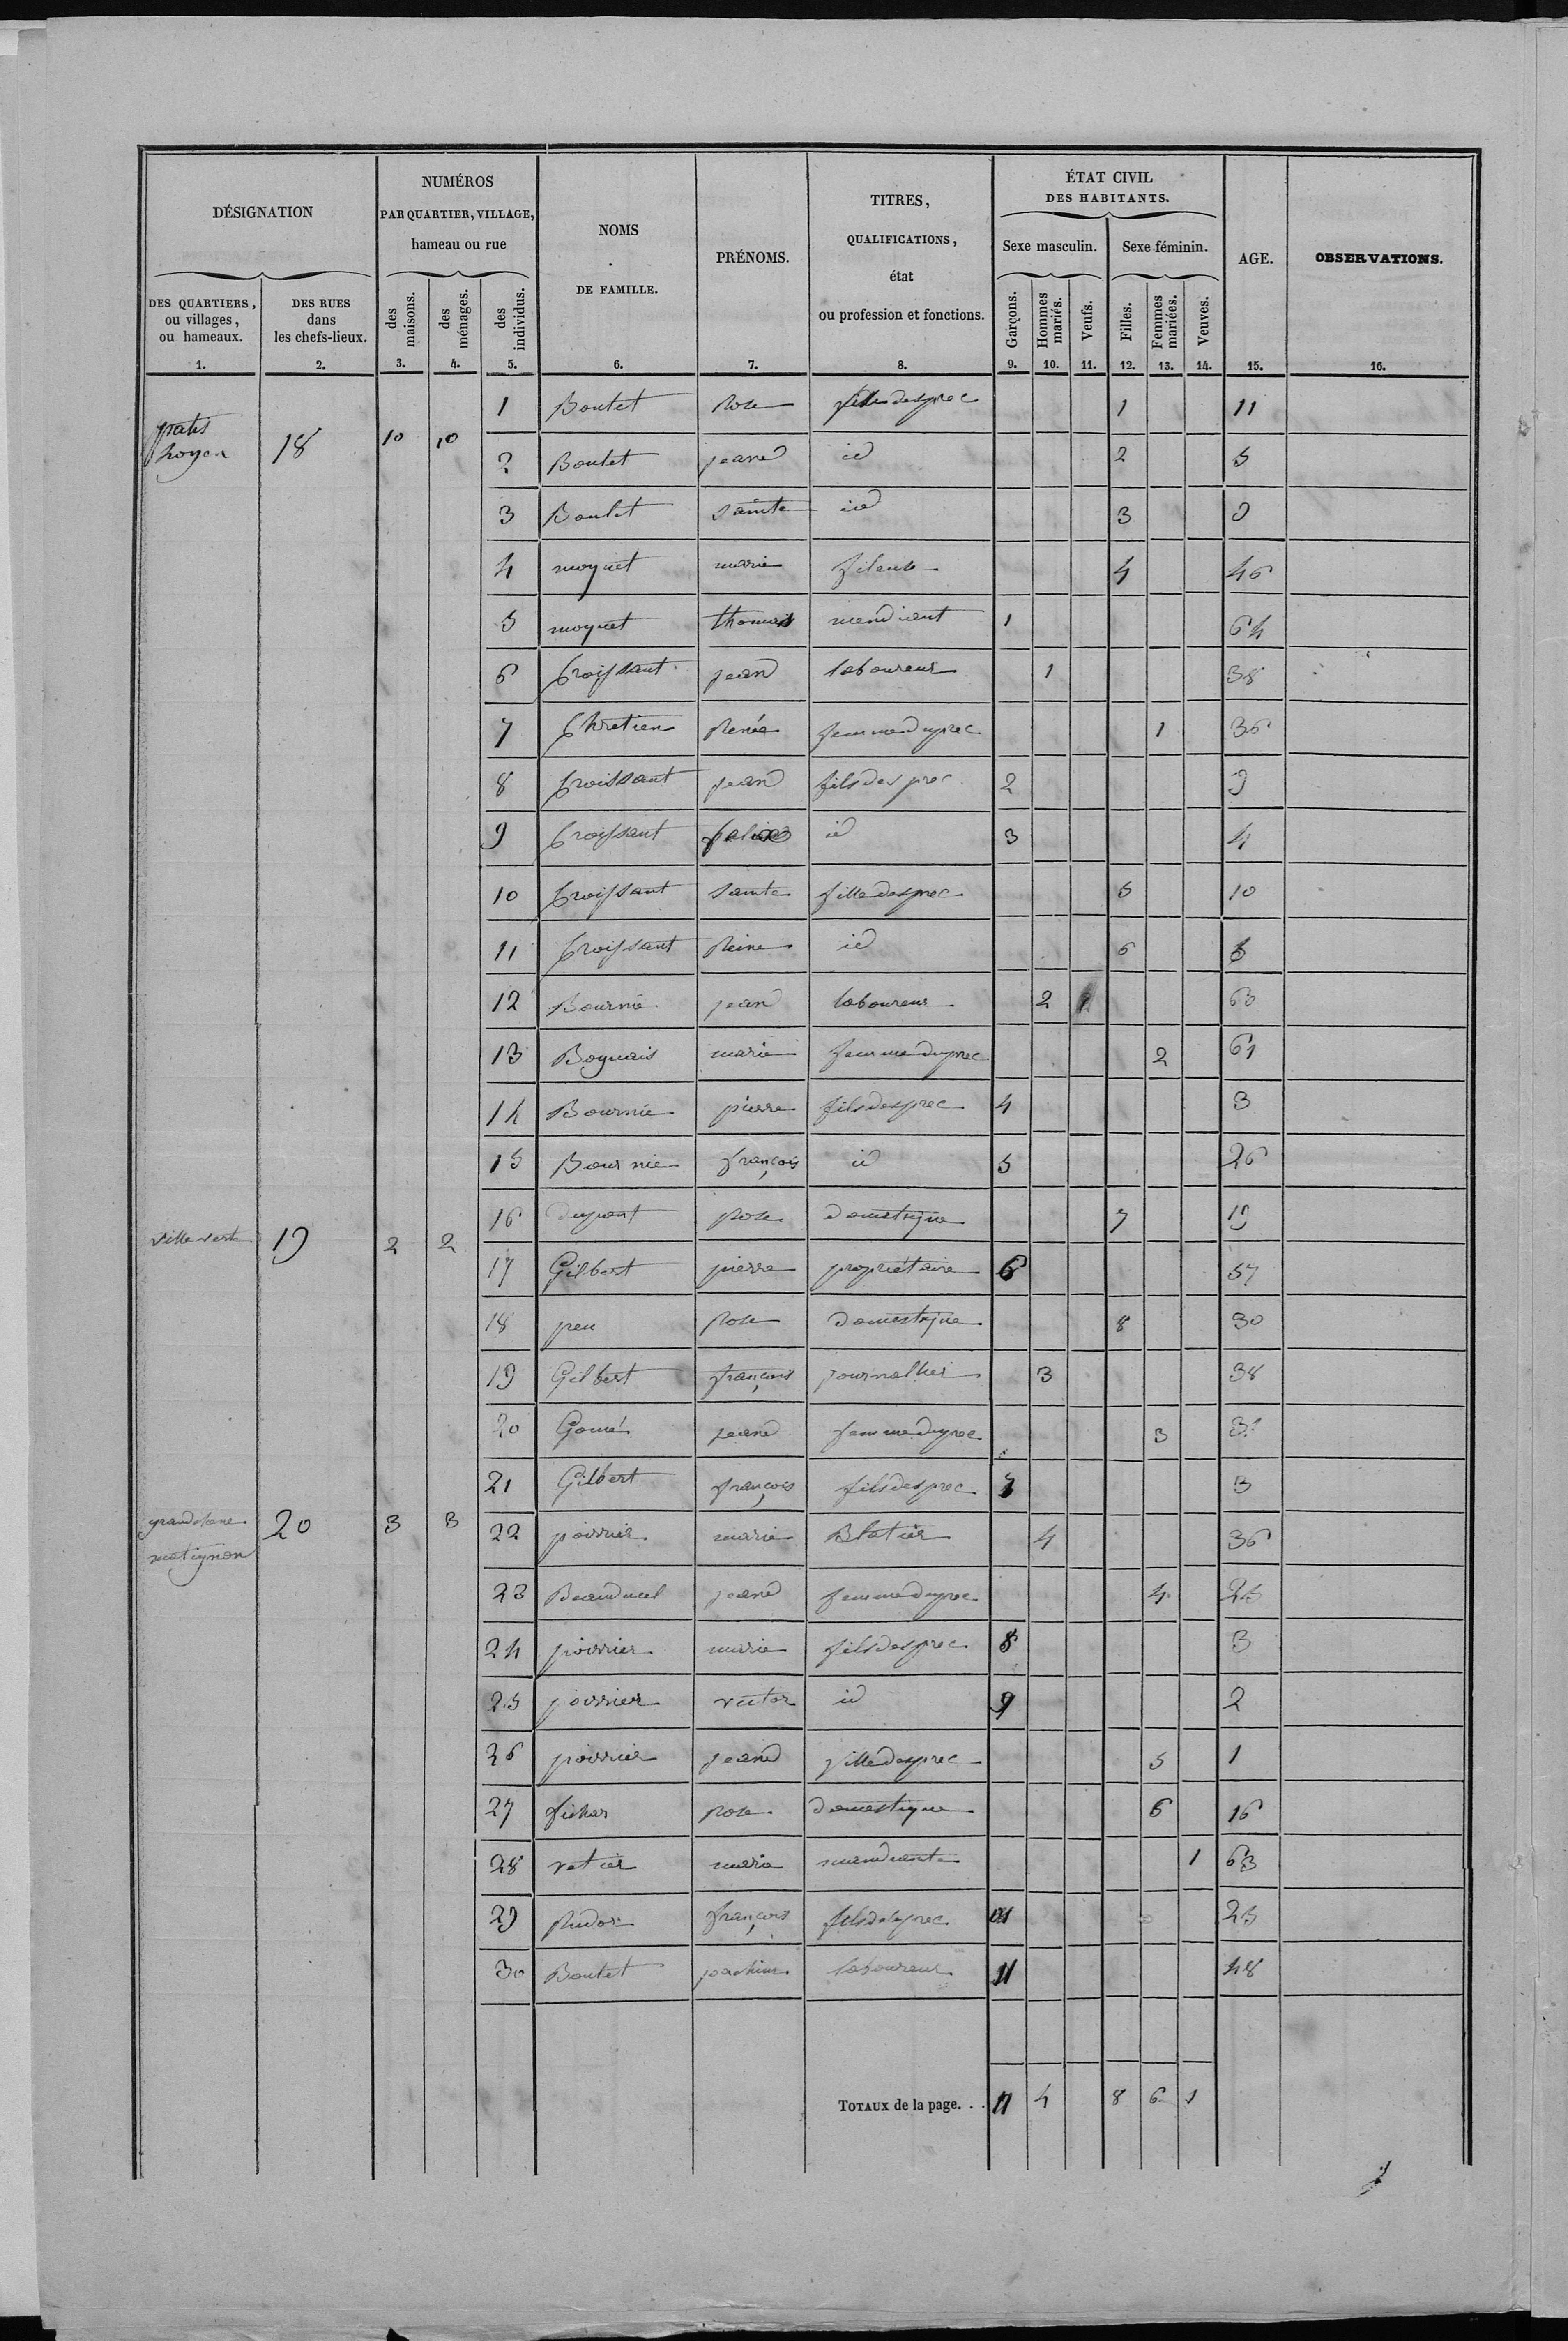 DÉSIGNATION
NUMÉROS
PAR QUARTIER, VILLAGE,
hameau ou rue
NOMS
DE FAMILLE.
PRÉNOMS.
TITRES,
QUALIFICATIONS,
état
ou profession et fonctions.
ÉTAT CIVIL
DES HABITANTS.
Sexe masculin. Sexe féminin.
AGE.
OBSERVATIONS.
DES QUARTIERS,
ou villages,
ou hameaux.
DES RUES
dans
les chefs-lieux.
des maisons.
des ménages.
des individus.
Garçons.
Hommes mariés.
Veufs.
Filles.
Femmes mariées.
Veuves.
1. 2. 3. 4. 5. 6. 7. 8. 9. 10. 11. 12. 13. 14. 15. 16.
1 Boutet Rose fille des prec 1 11
18 10 10
2 Boutet jeane id 2 5
3 Boutet sainte id 3 9
4 moquet marie fileuse 4 46
5 moquet thomas mendiant 1 64
6 Croissant jean laboureur 1 38
7 Chretien Renée femme du prec 1 36
8 Croissant jean fils des prec 2 9
9 Croissant id 3 4
10 Croissant sainte fille des prec 5 10
11 Croissant Reine id 6
12 Bournie jean laboureur 2 60
13 Boguais marie femme du prec 2 61
14 Bournie pierre fils des prec 4 3
15 Bournie françois id 5 26
16 dupont Rose domestique 7 19
ville verte 19 2 2
17 Gilbert pierre propriétaire 6 57
18 peu Rose domestique 8 30
19 Gilbert françois journallier 3 38
20 Gomé jeane femme du prec 3
21 Gilbert françois fils des prec 7 3
grand
matignon 20 3 3
22 poirrier marie Blatier 4 36
23 Beauducel jeane femme du prec 4 25
24 poirrier marie fils des prec 8 3
25 poirrier victor id 9 2
26 poirrier jeane fille des prec 5 1
27 Rose domestique 6 16
28 vetier marie mendiante 1 63
29 françois fils de la prec 25
30 Boutet joachim laboureur 11 48
TOTAUX de la page. . . 11 4 8 6 1